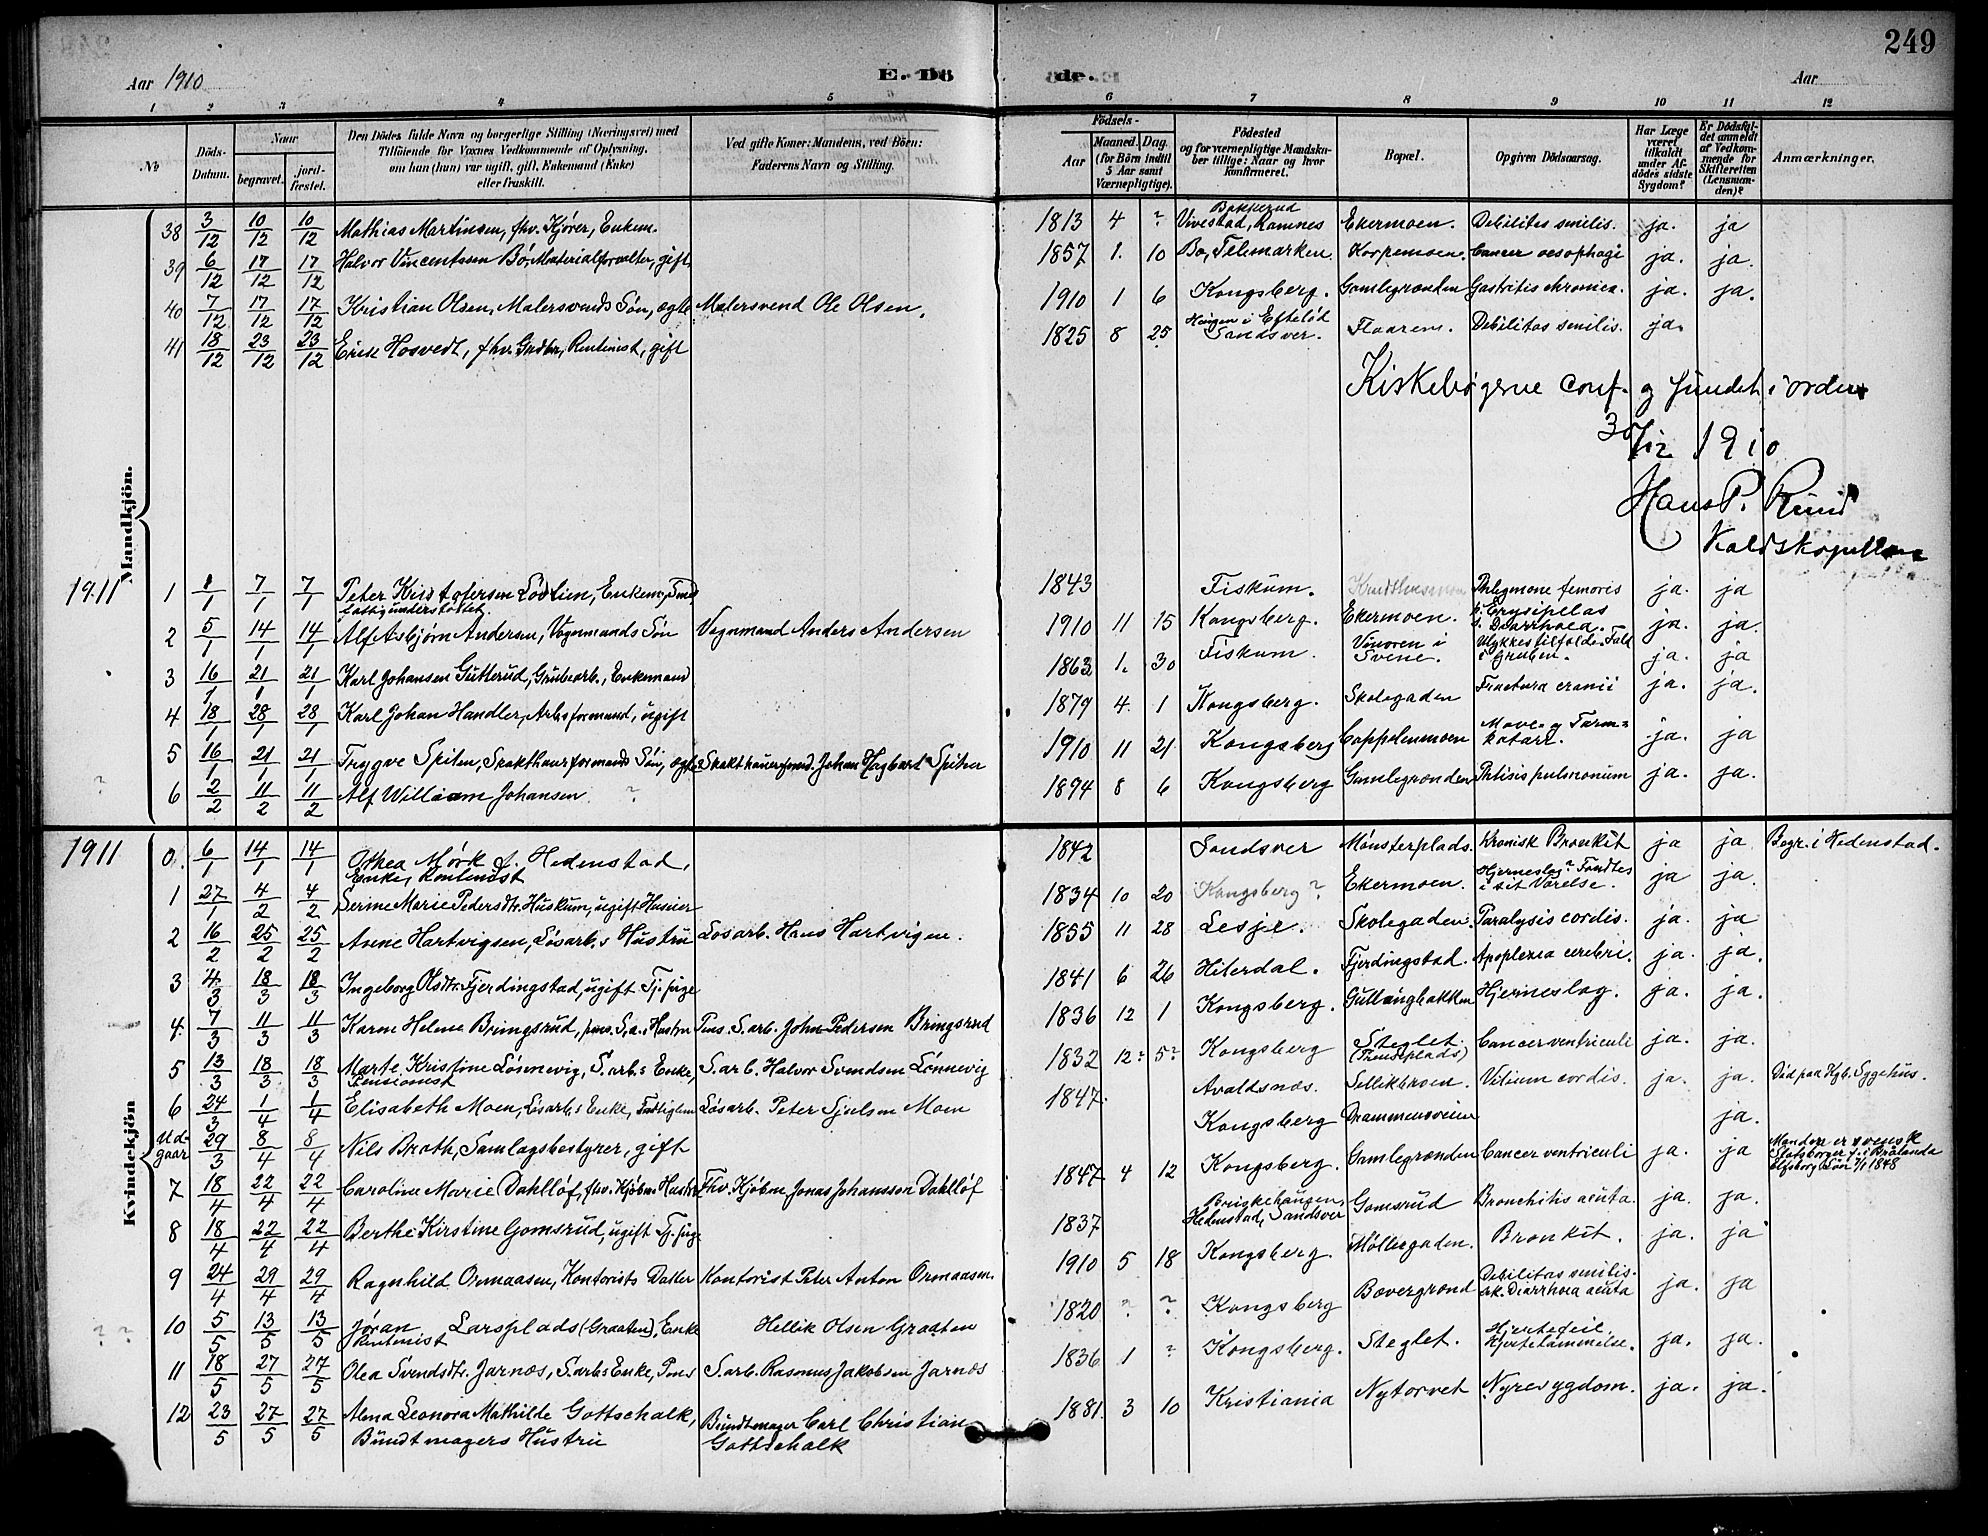 249
Aar 1910
E. Dö
de.
Aar
1 2 3 4 5 6 7 8 9 10 11 12
No
Döds-Datum.
Naar
begravet.
jord-fæstet.
Den Dödes fulde Navn og borgerlige Stilling (Næringsvei) med
Tilföiende for Voxnes Vedkommende af Oplysning,
om han (hun) var ugift, gift, Enkemand (Enke)
eller fraskilt.
Ved gifte Koner: Mandens, ved Börn:
Faderens Navn og Stilling.
Födsels-
Aar
Maaned. Dag.
(for Börn indtil
5 Aar samt
Værnepligtige).
Födested
og for værnepligtige Mandskaber tillige: Naar og hvor konfirmeret.
Bopæl.
Opgiven Dödsaarsag.
Har Læge været tilkaldt under Afdödes sidste Sygdom?
Er Dödsfaldet anmeldt af Vedkommende for Skifteretten (Lensmanden)?
Anmærkninger.
Mandkjön.
38 3/12 10/12 10/12 Mathias Martinsen, fhv. Kjører, Enkem. 1813 4 ? Bakkerud Vivestad, Ramnes Ekermoen. Debilitas senilis. ja. ja
39 6/12 17/12 17/12 Halvor Vincentssen Bö, Materialforvalter, gift 1857 1. 10 Bø, Telemarken Korpemoen. Cancer oesophagi ja. ja.
40 7/12 17/12 17/12 Kristian Olsen, Malersvends Søn, ægte Malersvend Ole Olsen. 1910 1 6 Kongsberg. Gamlegrønden Gastritis chronica. ja. ja.
41 18/12 23/12 23/12 Erik Hosvedt, fhv. Gudbr., Rentenist, gift 1825 8 25 Haugen i Efteløt Sandsver. Flaarem. Debilitas senilis. ja.
Kirkebøgerne conf. og fundet i orden
30/12 1910
Hans P. Ruud
1911
1 1/1 7/1 7/1 Peter Kristofersen Lødlien, Enkem., Fattigunderstøttet. 1843 Fiskum. Phlegmone femoris & Erysipelas ja. ja
2 5/1 14/1 14/1 Alf Asbjørn Andersen, Vognmands Søn Vognmand Anders Andersen 1910 11 15 Kongsberg. Ekermoen. Diarrhoea. ja. ja.
3 16/1 21/1 21/1 Karl Johansen Gutterud, Grubearb., Enkemand 1863 1. 30 Fiskum. Vinoren i Svene. Ulykkestilfælde. Fald i Gruben. ja. ja
4 18/1 28/1 28/1 Karl Johan Handler, Arbs formand, ugift 1879 4. 1 Kongsberg. Skolegaden Fractura cranii ja. ja.
5 16/1 21/1 21/1 Trygve Spiten, Skakthauerformands Søn, ægte Skakthauerformd. Johan Hagbart Spiten 1910 11 21. Kongsberg Cappelenmoen Mave- og Tarm-katarr. ja. ja
6 2/2 11/2 11/2 Alf William Johansen ? 1894 8 6 Kongsberg Gamlegrønden Phtisis pulmonum ja. ja.
Kvindekjön
1911
0. 6/1 14/1 14/1 Othea Mørk f. Hedenstad, Enke, Rentenist 1842 Sandsver Mønsterplads. Kronisk Bronkit ja ja Begr. i Hedenstad.
1 27/1 4/2 4/2 Serine Marie Pedersdtr. Huskum, ugift Husier 1834 10 20 Kongsberg? Ekermoen. Hjerneslag? Fandtes i sit Værelse. ja ja.
2 16/2 25/2 25/2 Anne Hartvigsen, Løsarb.s Hustru Løsarb. Hans Hartvigsen. 1855 11 28 Lesje. Skolegaden. Paralysis cordis. ja. ja
3 4/3 18/3 18/3 Ingeborg Olsdtr. Fjerdingstad, ugift Tj.pige 1841 6 26 Hiterdal. Fjerdingstad. Apoplexia cerebri. ja. ja.
4. 7/3 11/3 11/3 Karen Helene Bringsrud, pens. S.a.s Hustru Pens. S.arb. John Pedersen Bringsrud 1836 12 1 Kongsberg. Gullaugbakken Hjerneslag. ja. ja.
5 13/3 18/3 18/3 Marte Kristine Lønnevig, S.arb.s Enke, Pensionist S.arb. Halvor Svendsen Lønnevig 1832 12? 5? Kongsberg Steglet. Cancer ventriculi ja. ja.
6 24/3 1/4 1/4 Elisabeth Moen, Løsarb.s Enke, Fattiglem Løsarb. Peter Sjulsen Moen 1847. Avaldsnæs. Sellikbroen. Vitium cordis. ja. ja. Død paa Kgb. Sygehus.
Udgaar 29/3 8/4 8/4 Nils Brath, Samlagsbestyrer, gift Kongsberg Drammensveien ja.
7 18/4 22/4 22/4 Caroline Marie Dahllöf, fhv. Kjøbm. Hustru Fhv. Kjøbm. Jonas Johansson Dahllöf 1847 4 12 Kongsberg. Gamlegrønden Cancer ventriculi ja. ja Manden er svensk Statsborger f. i Brålanda Elfsborg Län 7/1 1848
8 18/4 22/4 22/4 Berthe Kirstine Gomsrud, ugift Tj.pige 1837 Hedenstad, Sandsver Gomsrud Bronchitis acuta. ja. ja.
9 24/4 29/4 29/4 Ragnhild Ormaasen, Kontorists Datter Kontorist Peter Anton Ormaasen. 1910 5 18 Kongsberg. Møllergaden. Bronkit. ja. ja
10 5/5 13/5 13/5 Jøran Larsplads (Graaten), Enke Rentenist Hellik Olsen Graaten 1820 ? ? Kongsberg Bævergrønd Debilitas senilis. ark. Diarrhoea acuta ja. ja
11 18/5 27/5 27/5 Olea Svendsdtr. Jarnæs, S.arbs Enke, Pens S.arb. Rasmus Jakobsen Jarnæs 1836 1 ? Kongsberg. Steglet. Hjertefeil, Hjertelammelse. ja. ja.
12 23/5 27/5 27/5 Alma Leonora Mathilde Gottschalk, Bundtmagers Hustru Bundtmager Carl Christian Gottschalk 1881. 3 10 Kristiania Nytorvet Nyresygdom. ja. ja.